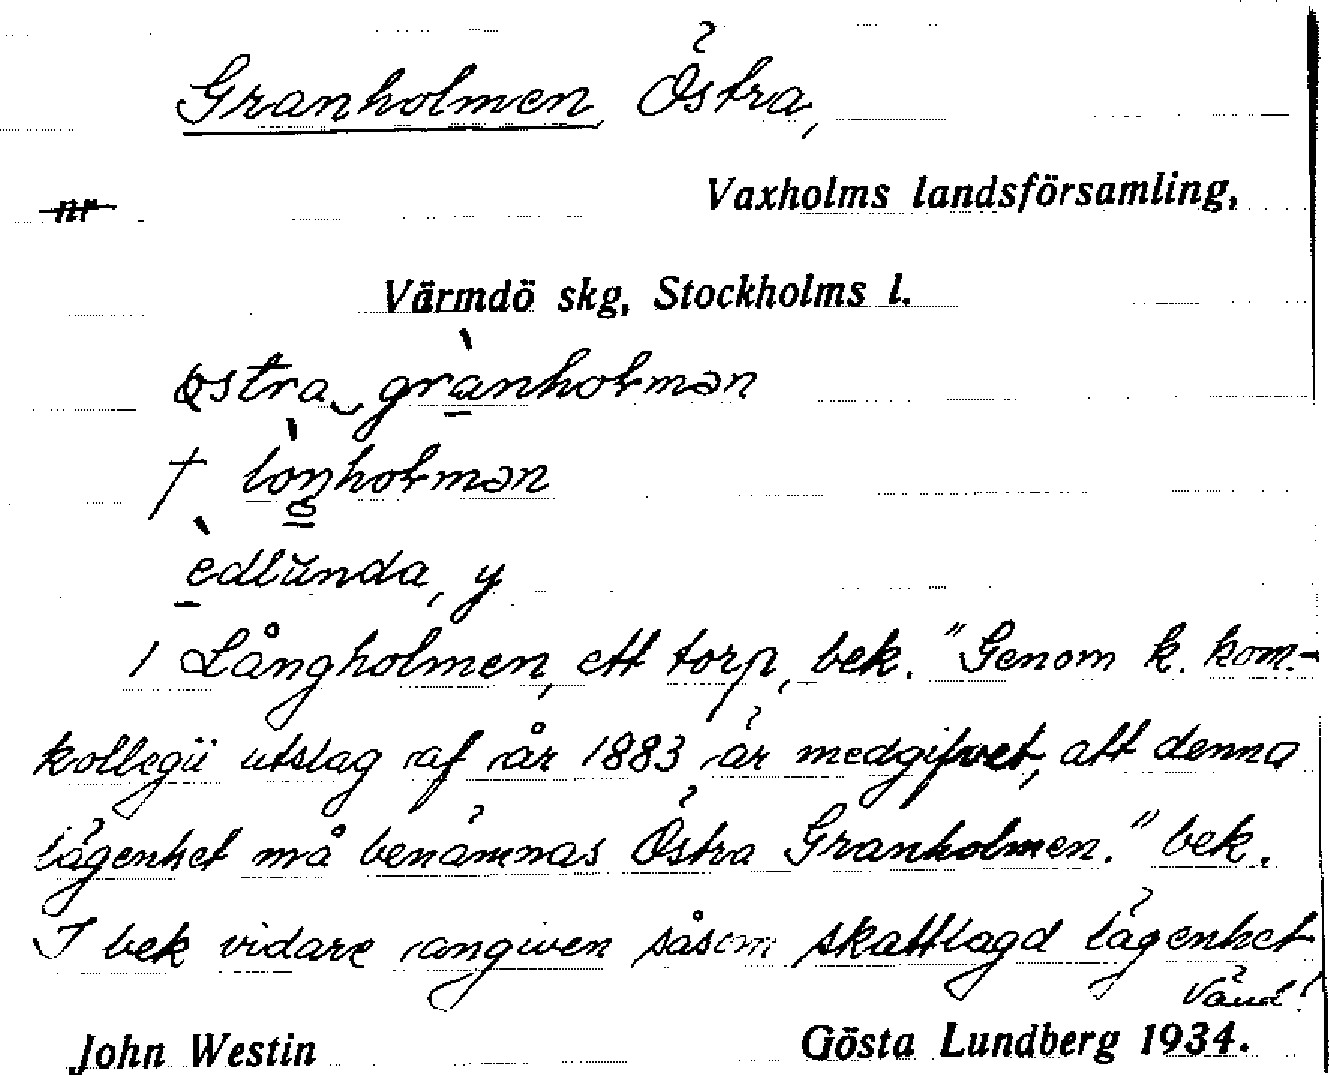 Granholmen, Östra,
nr
Vaxholms landsförsamling,
Värmdö skg, Stockholms l.
östra‿granholmən
† loŋholmən
edlunda, y
/ Långholmen, ett torp, bek. "Genom k. kom.-
kollegii utslag af år 1883 är medgifvet, att denna
lägenhet må benämnas Östra Granholmen." bek.
I bek vidare angiven såsom skattlagd lägenhet
Vänd!
John Westin
Gösta Lundberg 1934.